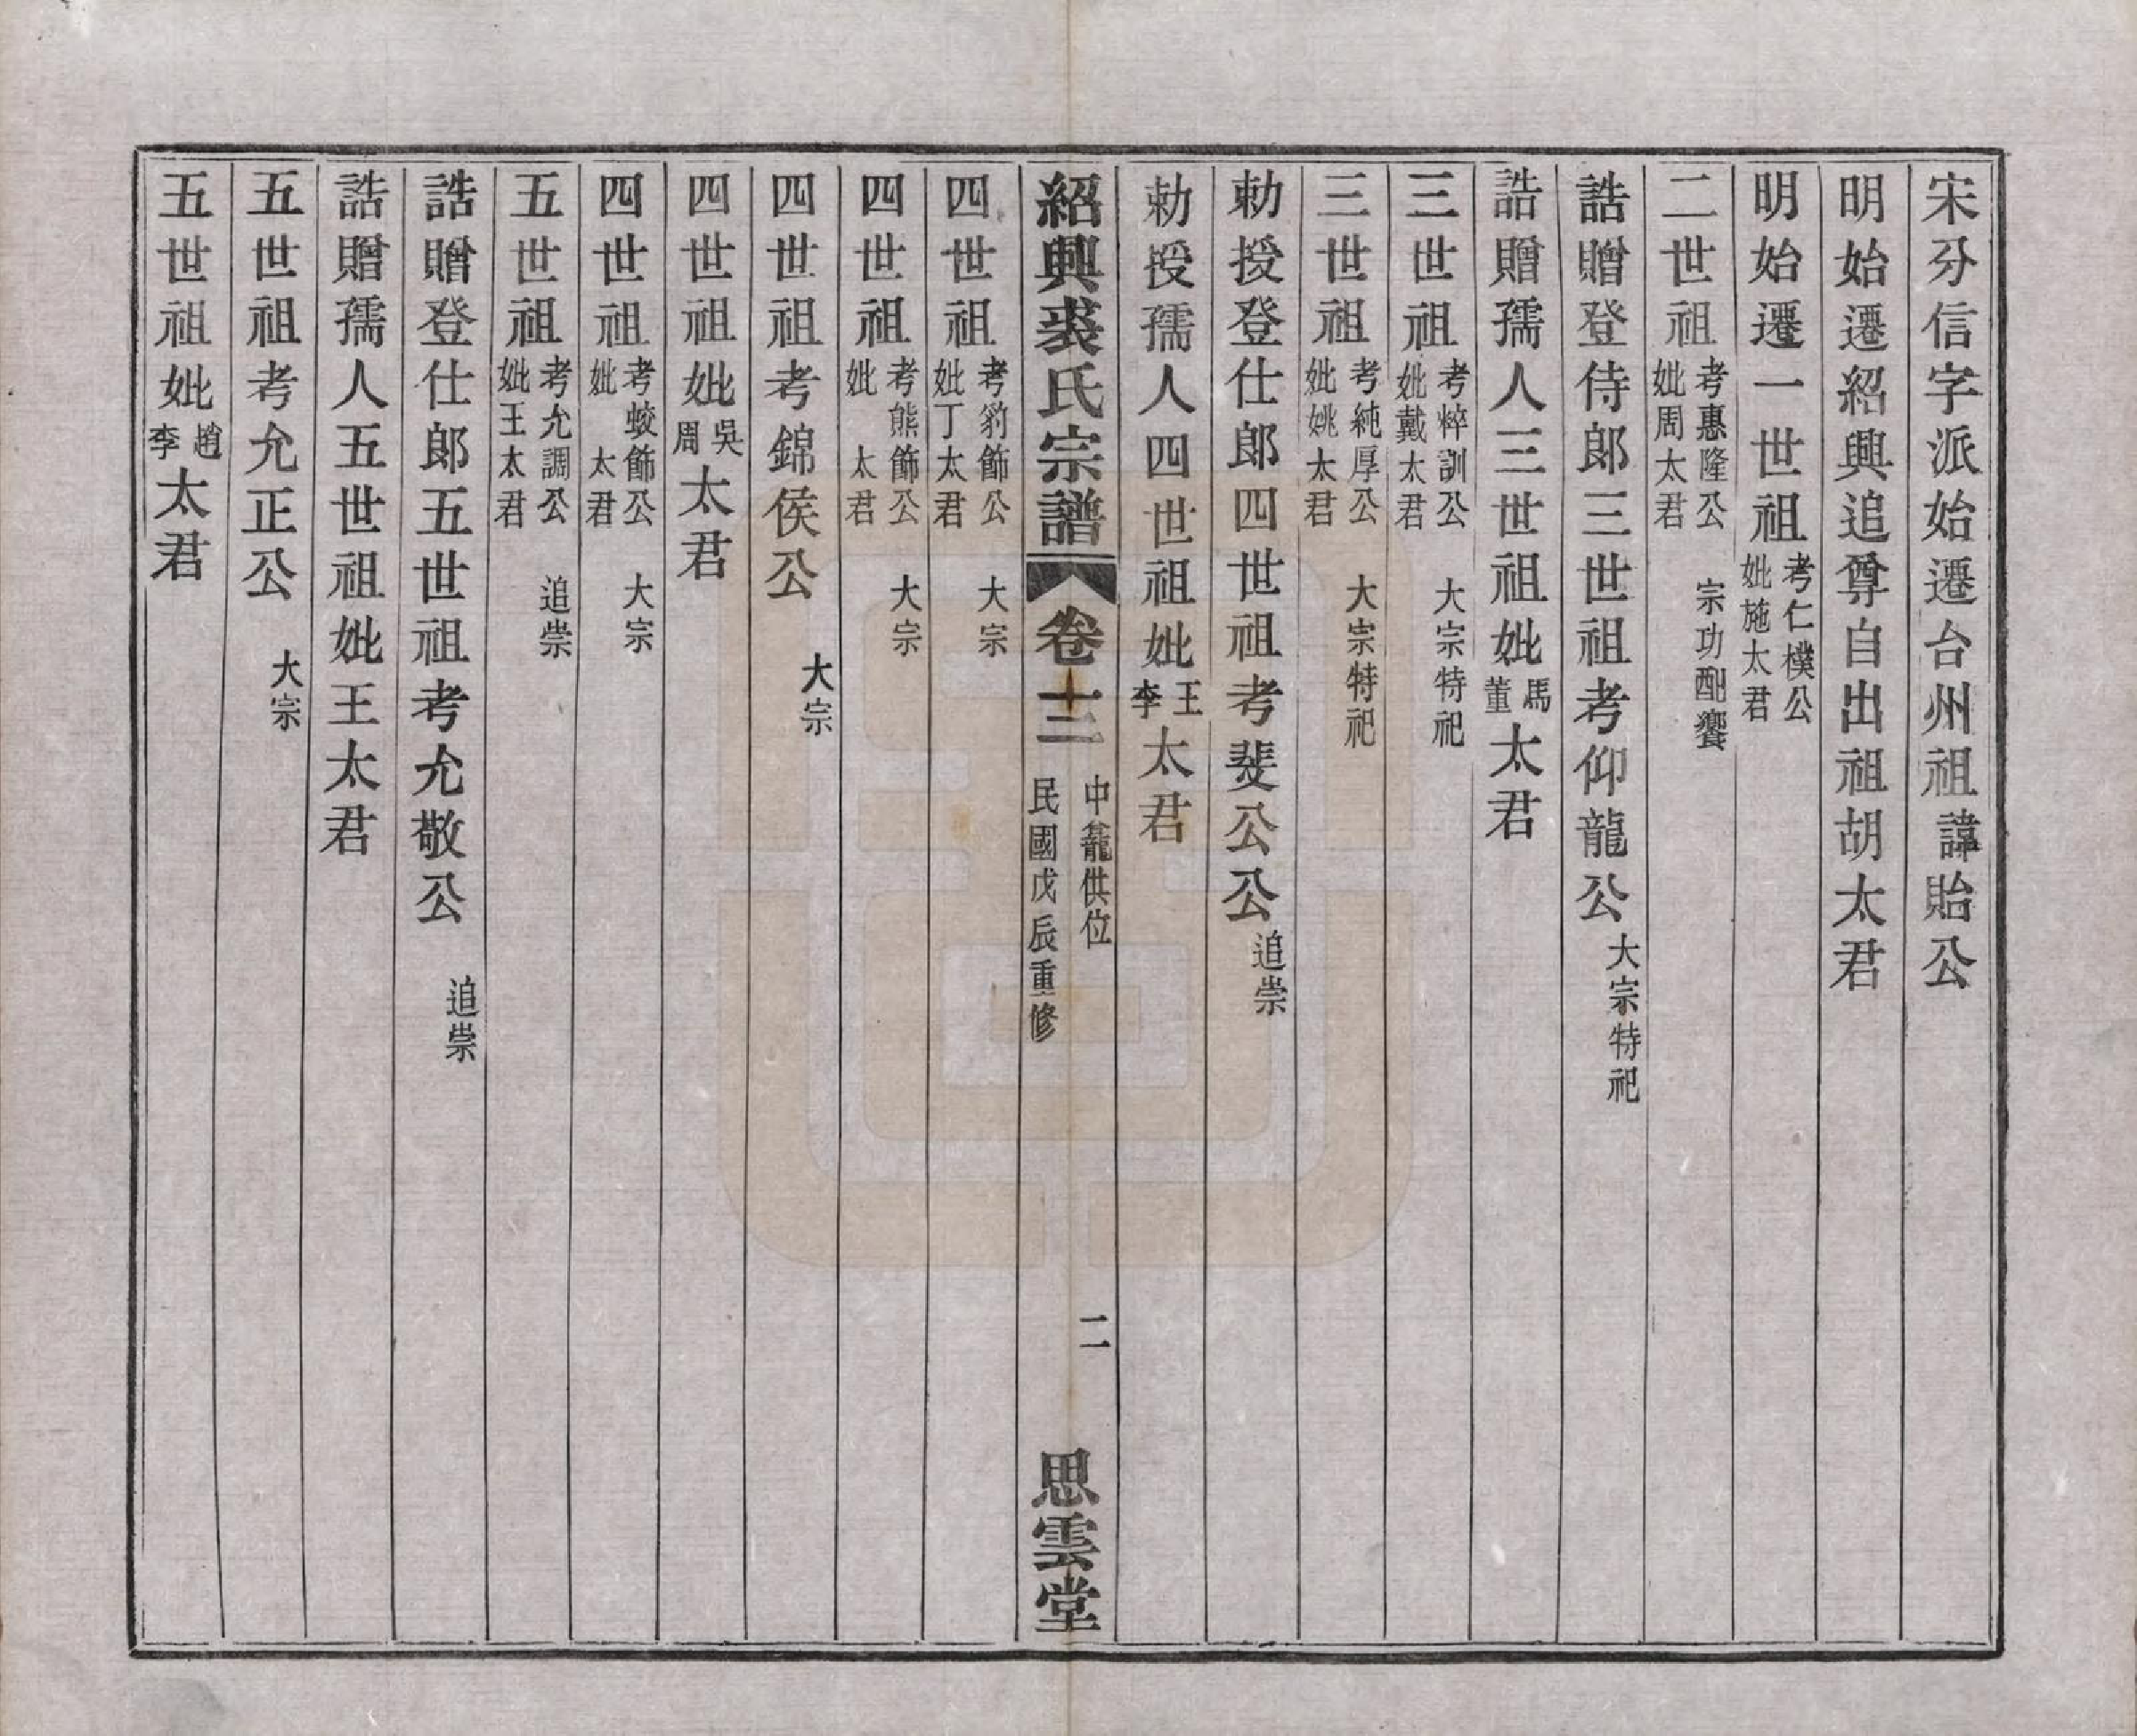 宋分信字派始遷台州祖諱貽公
明始遷紹興追尊自出祖胡太君
明始遷一世祖考仁樸公妣施太君
二世祖考惠隆公妣周太君 宗功配饗
誥贈登侍郎三世祖考仰龍公 大宗特祀
誥贈孺人三世祖妣馬董太君
三世祖考悴訓公妣戴太君 大宗特祀
三世祖考純厚公妣姚太君 大宗特祀
勅授登仕郎四世祖考斐公公 追崇
勅授孺人四世祖妣王李太君
紹興裘氏宗譜 卷十二 中龕供位 民國戊辰重修 二 思雲堂
四世祖考豹飾公妣丁太君 大宗
四世祖考熊飾公妣 太君 大宗
四世祖考錦侯公 大宗
四世祖妣吳周太君
四世祖考蛟飾公妣 太君 大宗
五世祖考允調公妣王太君 追崇
誥贈登仕郎五世祖考允敬公 追崇
誥贈孺人五世祖妣王太君
五世祖考允正公 大宗
五世祖妣趙李太君